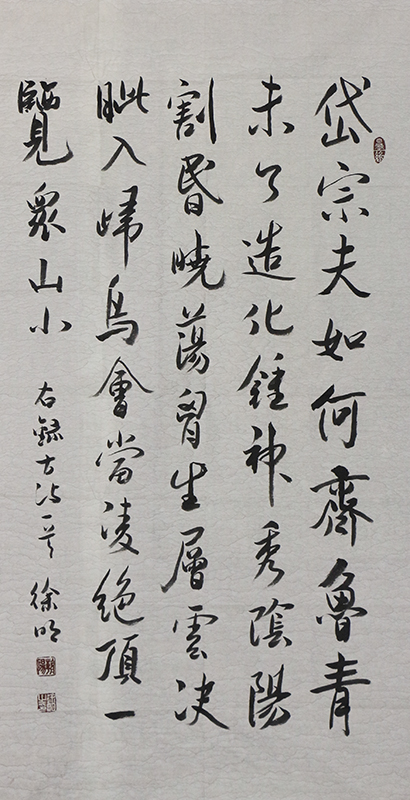 岱宗夫如何齊魯青
未了造化鍾神秀陰陽
割昏曉蕩胷生層雲决
眦入歸鳥會當凌絕頂一
覽衆山小
右錄古詩一首 徐明